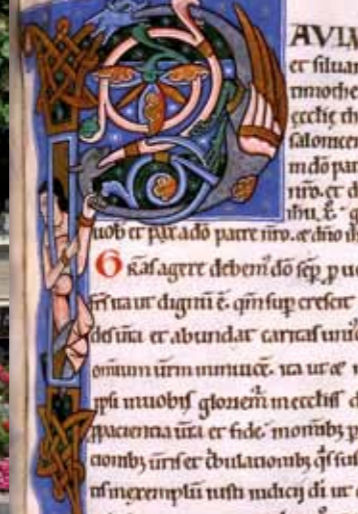 AVLV
et siluan
timothe
ęcclię th
salonicen
in dō pat
nr̄o. et d
ihū. x̄. g
uob et pax a dō patre nr̄o. et dn̄o ih
Gr̄as agere debem᷒ dō sēp p uo
fr̄s ita ut dignū ē. qm̄ sup crescit
des ur̄a et abundat caritas uni
omnium ur̄m inuicē. ita ut
ipsi in uobis gloriem᷒ in ecclis d
paciencia ur̄a et fide. in omībꝫ p
cionibꝫ ur̄is et tribulationibꝫ q̄s sus
tis in exemplū iusti iudicij di ut